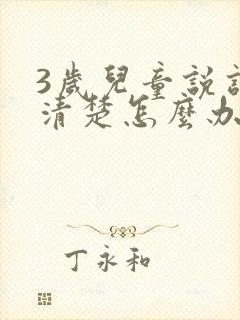 3歲兒童說
清楚怎麼办
丁永和